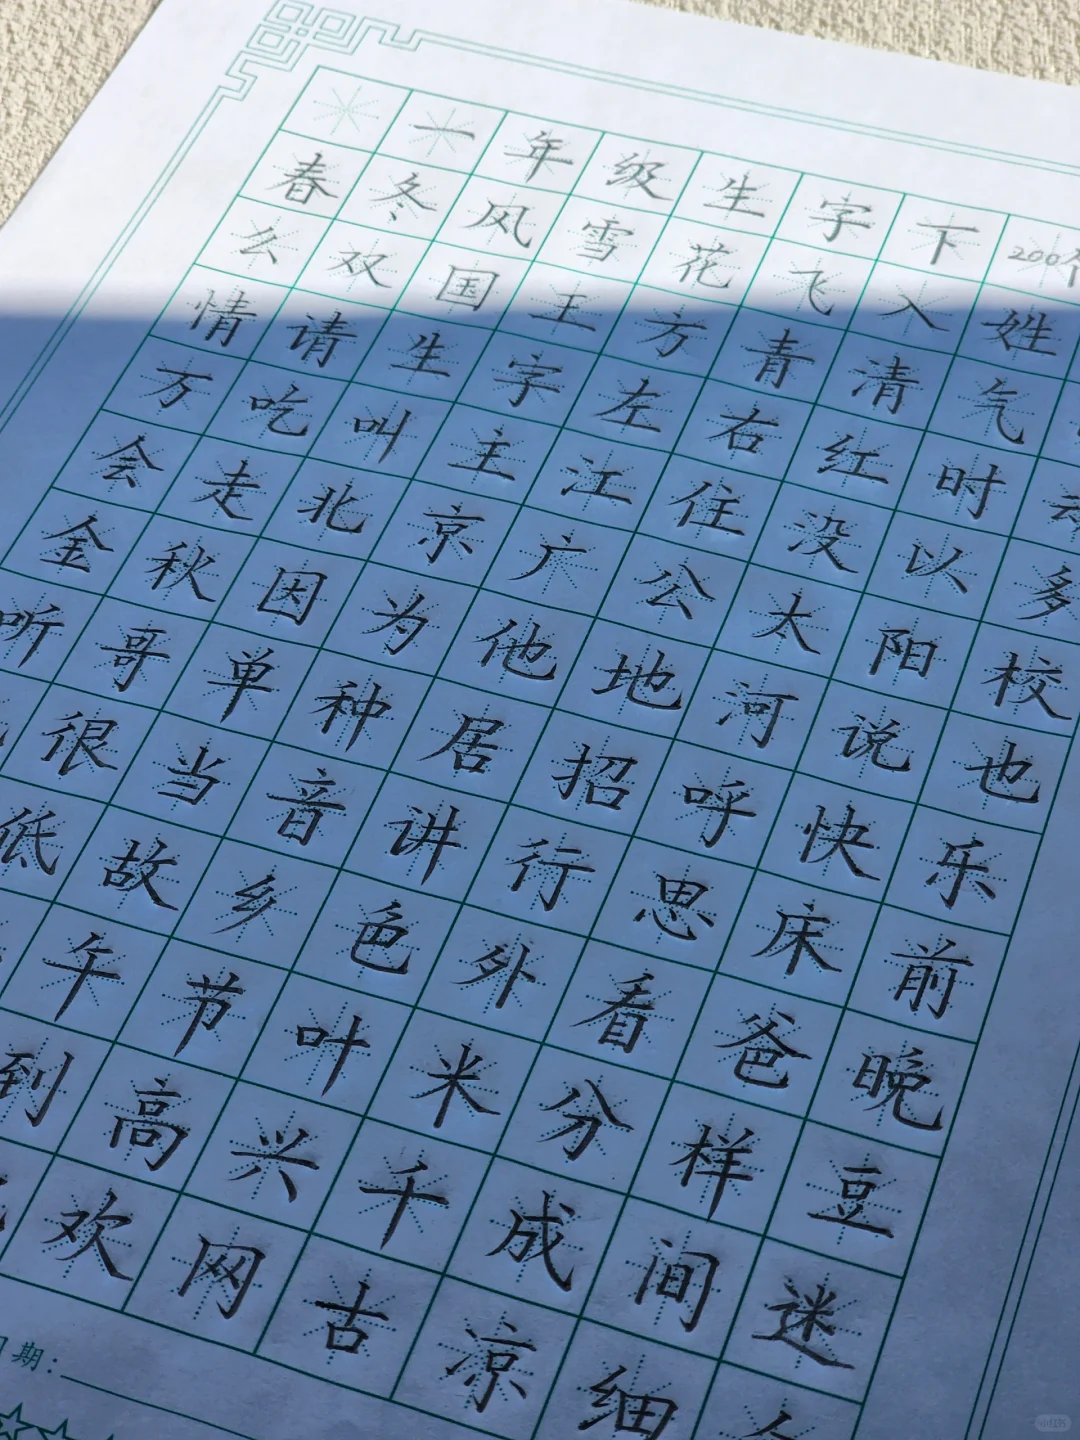 一年级生字下200个
春冬风雪花飞入姓
么双国王方青清气
情请生字左右红时
万吃叫主江住没以多
会走北京广公太阳校
金秋因为他地河说也
听哥单种居招呼快乐
很当音讲行思床前
低故乡色外看爸晚
午节叶米分样豆
到高兴千成间迷
欢网古凉细
期:
小红书